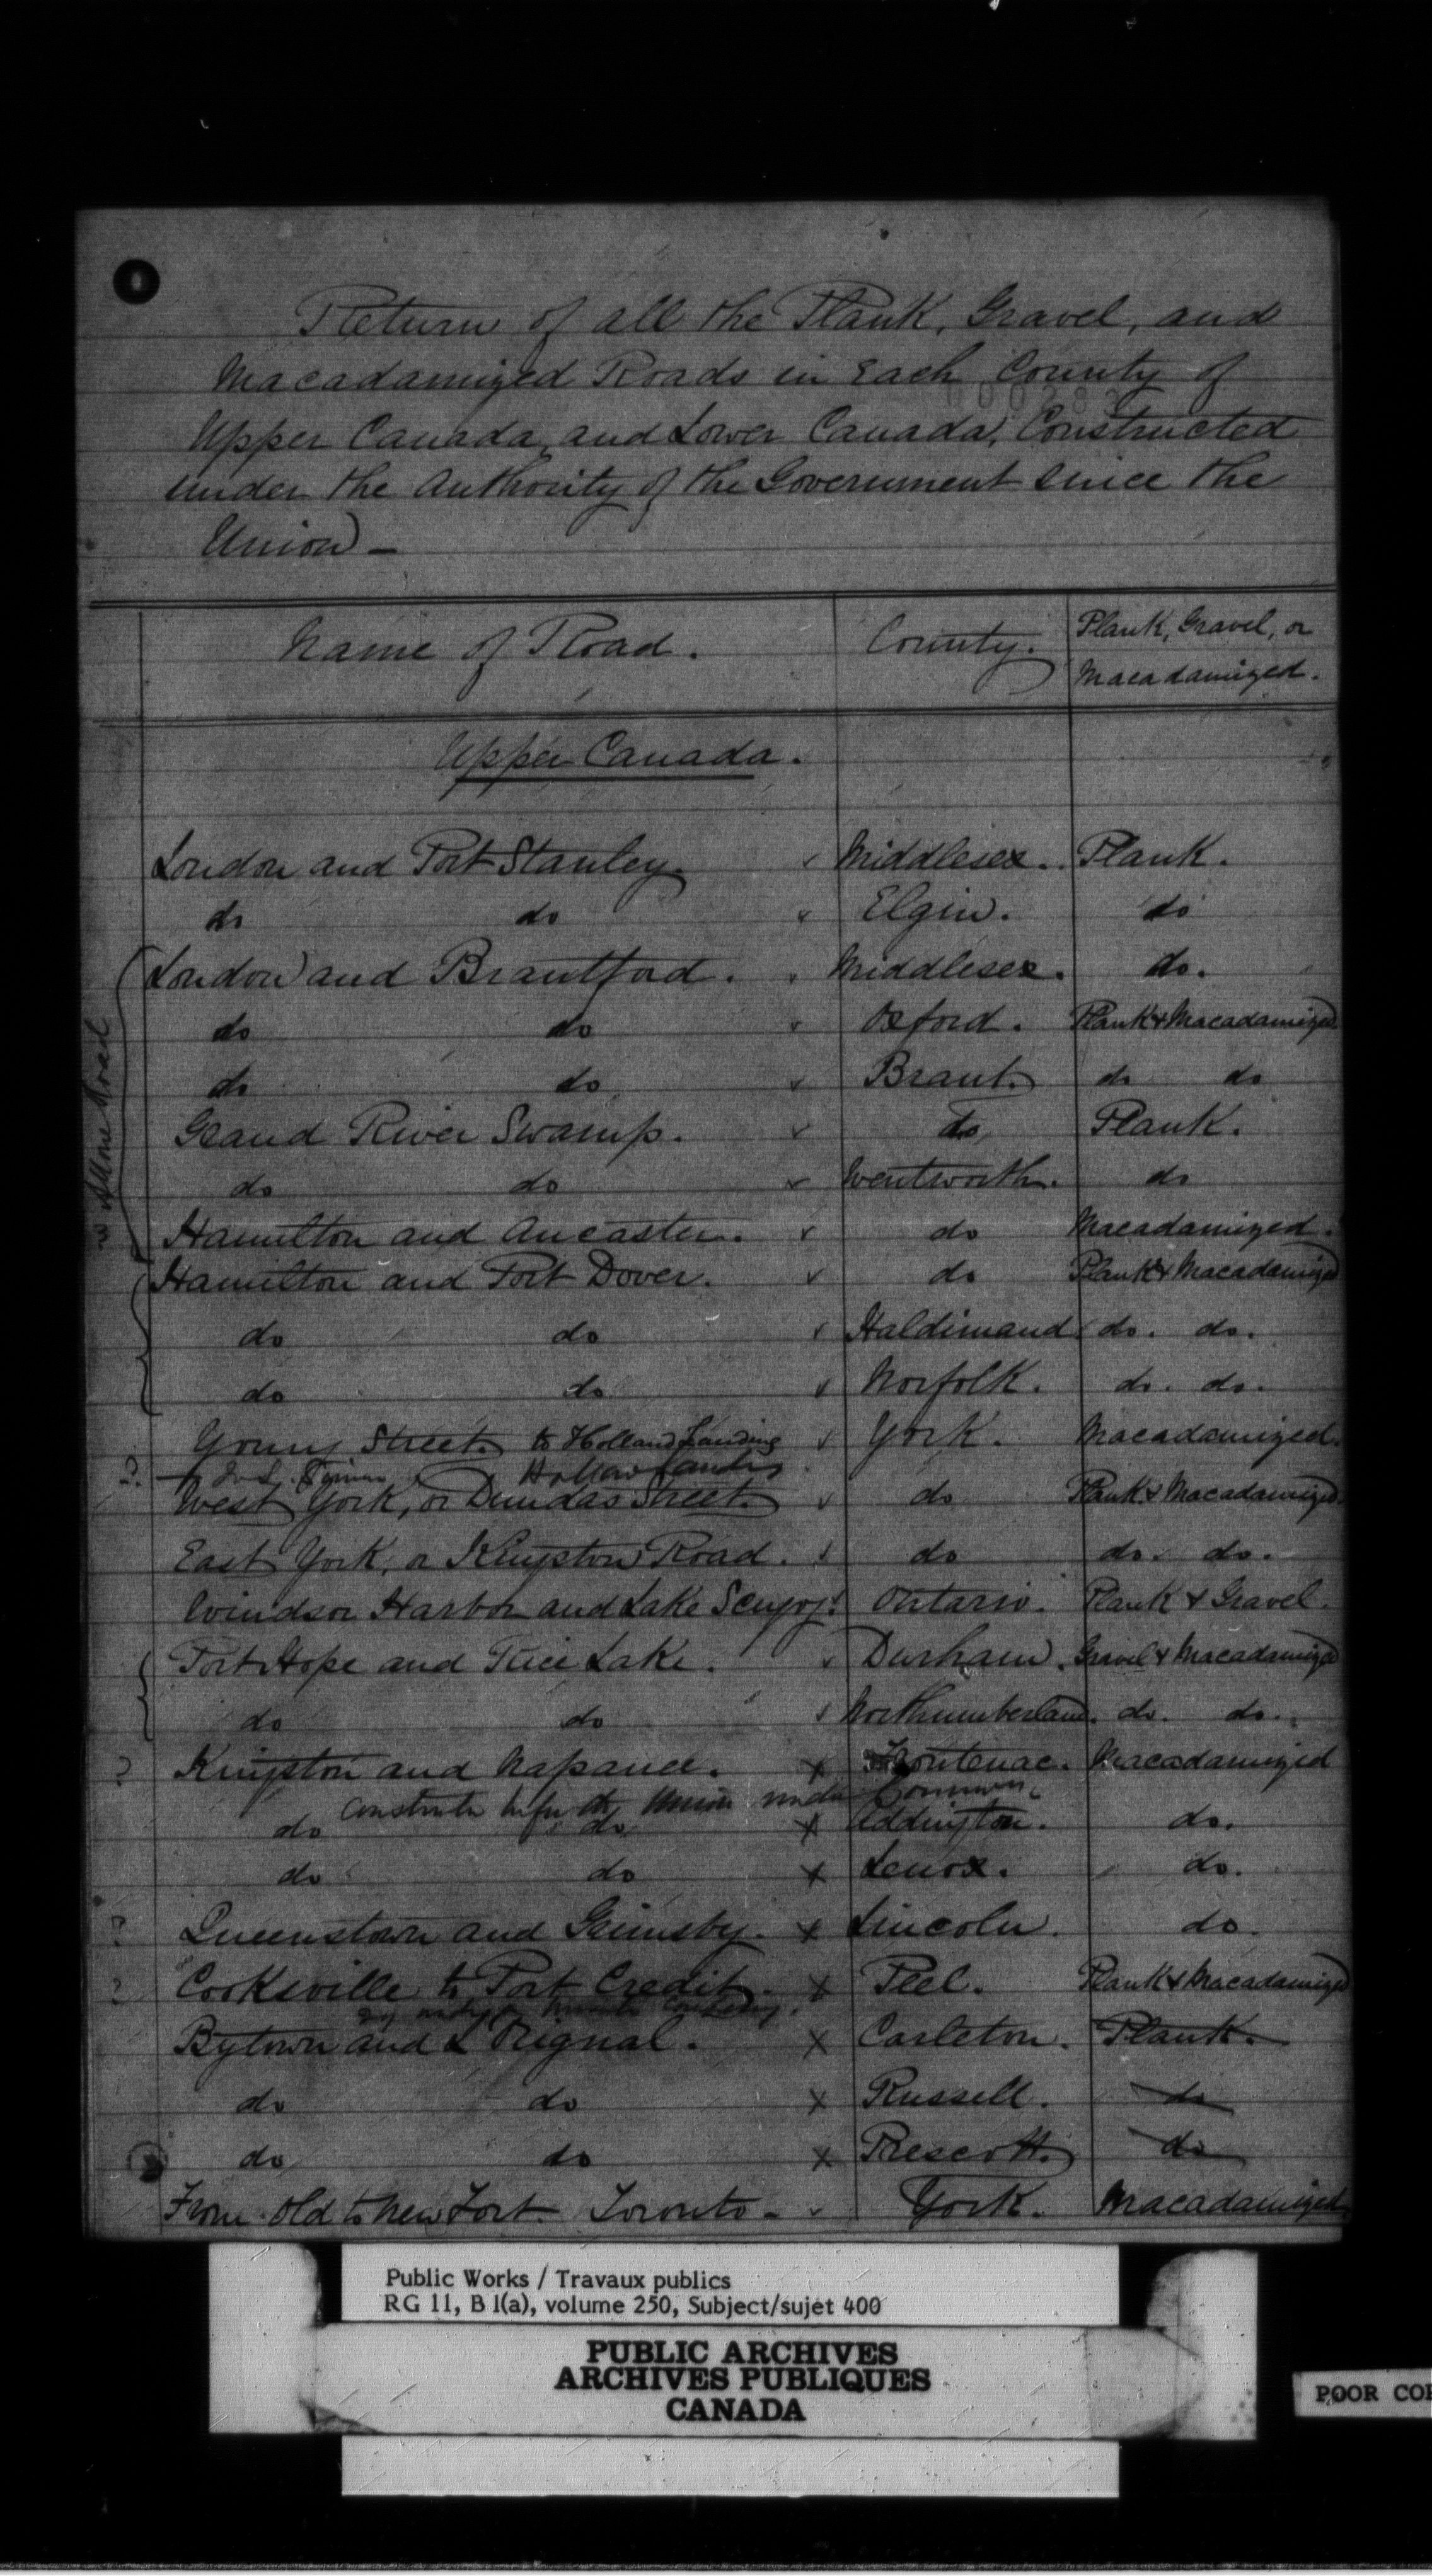 Return of all the Plank, Gravel, and
Macadamized Roads in Each County of
Upper Canada, and Lower Canada, Constructed
under the Authority of the Government since the
Union —
Name of Road. County. Plank, Gravel, or
Macadamized.
Upper Canada.
London and Port Stanley. Middlesex. Plank.
do do Elgin. do
London and Brantford. Middlesex. do.
do do Oxford. Plank & Macadamized
do do Brant. do do
Grand River Swamp. do Plank.
do do Wentworth. do
Hamilton and Ancaster. do Macadamized.
Hamilton and Port Dover. do Plank & Macadamized
do do Haldimand do. do.
do do Norfolk. do. do.
Young Street to Holland Landing York. Macadamized.
? Holland Landing
West York, or Dundas Street. do Plank & Macadamized.
East York, or Kingston Road. do do. do.
Windsor Harbor and Lake Scugog. Ontario. Plank & Gravel.
Port Hope and Rice Lake. Durham. Gravel & Macadamized
do do Northumberland. do. do.
? Kingston and Napanee. x Frontenac. Macadamized
the Union under
do do x Addington. do.
do do x Lenox. do.
? Queenstown and Grimsby. x Lincoln. do.
? Cooksville to Port Credit. x Peel. Plank & Macadamized
Bytown and L'Orignal. x Carleton. Plank.
do do x Russell. do
do do x Prescott. do
From Old to New Fort Toronto - York. Macadamized.
Road
Public Works / Travaux publics
RG 11, B 1(a), volume 250, Subject/sujet 400
PUBLIC ARCHIVES
ARCHIVES PUBLIQUES
CANADA
POOR COP